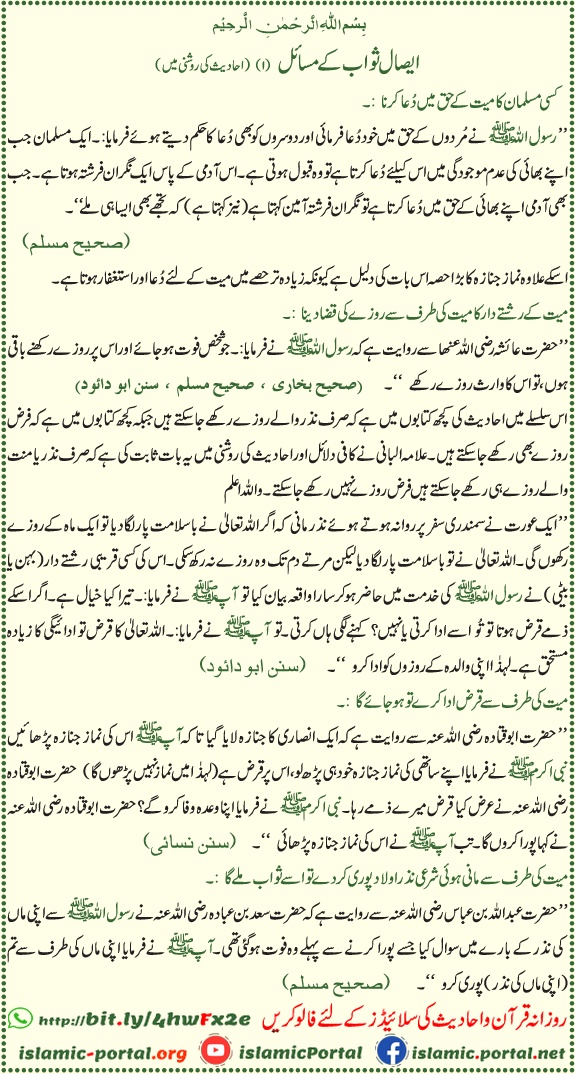 بِسْمِ اللهِ الرَّحْمٰنِ الرَّحِيْمِ
ایصال ثواب کے مسائل (۱) (احادیث کی روشنی میں)
کسی مسلمان کا میت کے حق میں دُعا کرنا :۔
’’رسول اللہ ﷺ نے مُردوں کے حق میں خود دُعا فرمائی اور دوسروں کو بھی دُعا کا حکم دیتے ہوئے فرمایا:۔ ایک مسلمان جب
اپنے بھائی کی عدم موجودگی میں اس کیلئے دُعا کرتا ہے تو وہ قبول ہوتی ہے۔ اس آدمی کے پاس ایک نگران فرشتہ ہوتا ہے۔ جب
بھی آدمی اپنے بھائی کے حق میں دُعا کرتا ہے تو نگران فرشتہ آمین کہتا ہے (نیز کہتا ہے) کہ تجھے بھی ایسا ہی ملے‘‘۔
(صحیح مسلم)
اسکے علاوہ نماز جنازہ کا بڑا حصہ اس بات کی دلیل ہے کیونکہ زیادہ تر حصے میں میت کے لئے دُعا اور استغفار ہوتا ہے۔
میت کے رشتے دار کا میت کی طرف سے روزے کی قضا دینا :۔
’’حضرت عائشہ رضی اللہ عنھا سے روایت ہے کہ رسول اللہ ﷺ نے فرمایا:۔ جو شخص فوت ہو جائے اور اس پر روزے رکھنے باقی
ہوں، تو اس کا وارث روزے رکھے ‘‘۔ (صحیح بخاری ، صحیح مسلم ، سنن ابو دائود)
اس سلسلے میں احادیث کی کچھ کتابوں میں ہے کہ صرف نذر والے روزے رکھے جا سکتے ہیں جبکہ کچھ کتابوں میں ہے کہ فرض
روزے بھی رکھے جا سکتے ہیں۔ علامہ البانی نے کافی دلائل اور احادیث کی روشنی میں یہ بات ثابت کی ہے کہ صرف نذر یا منت
والے روزے ہی رکھے جا سکتے ہیں فرض روزے نہیں رکھے جا سکتے۔ واللہ اعلم
’’ایک عورت نے سمندری سفر پر روانہ ہوتے ہوئے نذر مانی کہ اگر اللہ تعالیٰ نے باسلامت پار لگا دیا تو ایک ماہ کے روزے
رکھوں گی۔ اللہ تعالیٰ نے تو باسلامت پار لگا دیا لیکن مرتے دم تک وہ روزے نہ رکھ سکی۔ اس کی کسی قریبی رشتے دار (بہن یا
بیٹی) نے رسول اللہ ﷺ کی خدمت میں حاضر ہو کر سارا واقعہ بیان کیا تو آپ ﷺ نے فرمایا:۔ تیرا کیا خیال ہے۔ اگر اسکے
ذمے قرض ہوتا تو تُو اسے ادا کرتی یا نہیں؟ کہنے لگی ہاں کرتی۔ تو آپ ﷺ نے فرمایا:۔ اللہ تعالیٰ کا قرض تو ادائیگی کا زیادہ
مستحق ہے۔ لہٰذا اپنی والدہ کے روزوں کو ادا کرو ‘‘۔ (سنن ابو دائود)
میت کی طرف سے قرض ادا کرے تو ہو جائے گا :۔
’’حضرت ابو قتادہ رضی اللہ عنہ سے روایت ہے کہ ایک انصاری کا جنازہ لایا گیا تا کہ آپ ﷺ اس کی نماز جنازہ پڑھائیں
نبی اکرم ﷺ نے فرمایا اپنے ساتھی کی نماز جنازہ خود ہی پڑھ لو، اس پر قرض ہے (لہٰذا میں نماز نہیں پڑھوں گا) حضرت ابو قتادہ
رضی اللہ عنہ نے عرض کیا قرض میرے ذمے رہا۔ نبی اکرم ﷺ نے فرمایا اپنا وعدہ وفا کرو گے؟ حضرت ابو قتادہ رضی اللہ عنہ
نے کہا پورا کروں گا۔ تب آپ ﷺ نے اس کی نماز جنازہ پڑھائی ‘‘۔ (سنن نسائی)
میت کی طرف سے مانی ہوئی شرعی نذر اولاد پوری کر دے تو اسے ثواب ملے گا :۔
’’حضرت عبداللہ بن عباس رضی اللہ عنہ سے روایت ہے کہ حضرت سعد بن عبادہ رضی اللہ عنہ نے رسول اللہ ﷺ سے اپنی ماں
کی نذر کے بارے میں سوال کیا جسے پورا کرنے سے پہلے وہ فوت ہو گئی تھی۔ آپ ﷺ نے فرمایا اپنی ماں کی طرف سے تم
(اپنی ماں کی نذر) پوری کرو ‘‘۔ (صحیح مسلم)
روزانہ قرآن و احادیث کی سلائیڈز کے لئے فالو کریں http://bit.ly/4hwFx2e
islamic-portal.org islamicPortal islamic.portal.net